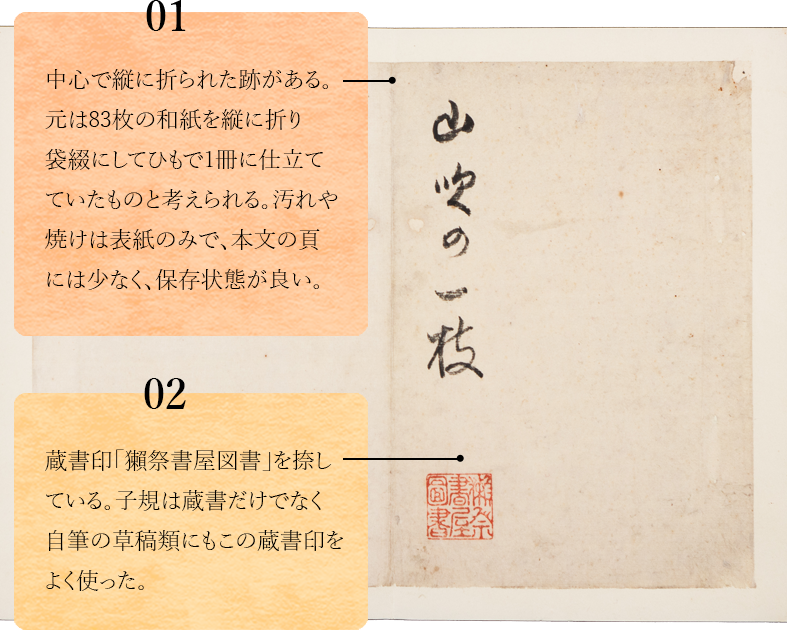 01
中心で縦に折られた跡がある。
元は83枚の和紙を縦に折り
袋綴にしてひもで1冊に仕立て
ていたものと考えられる。汚れや
焼けは表紙のみで、本文の頁
には少なく、保存状態が良い。
02
蔵書印「獺祭書屋図書」を捺し
ている。子規は蔵書だけでなく
自筆の草稿類にもこの蔵書印を
よく使った。
山吹の一枝
獺祭
書屋
圖書